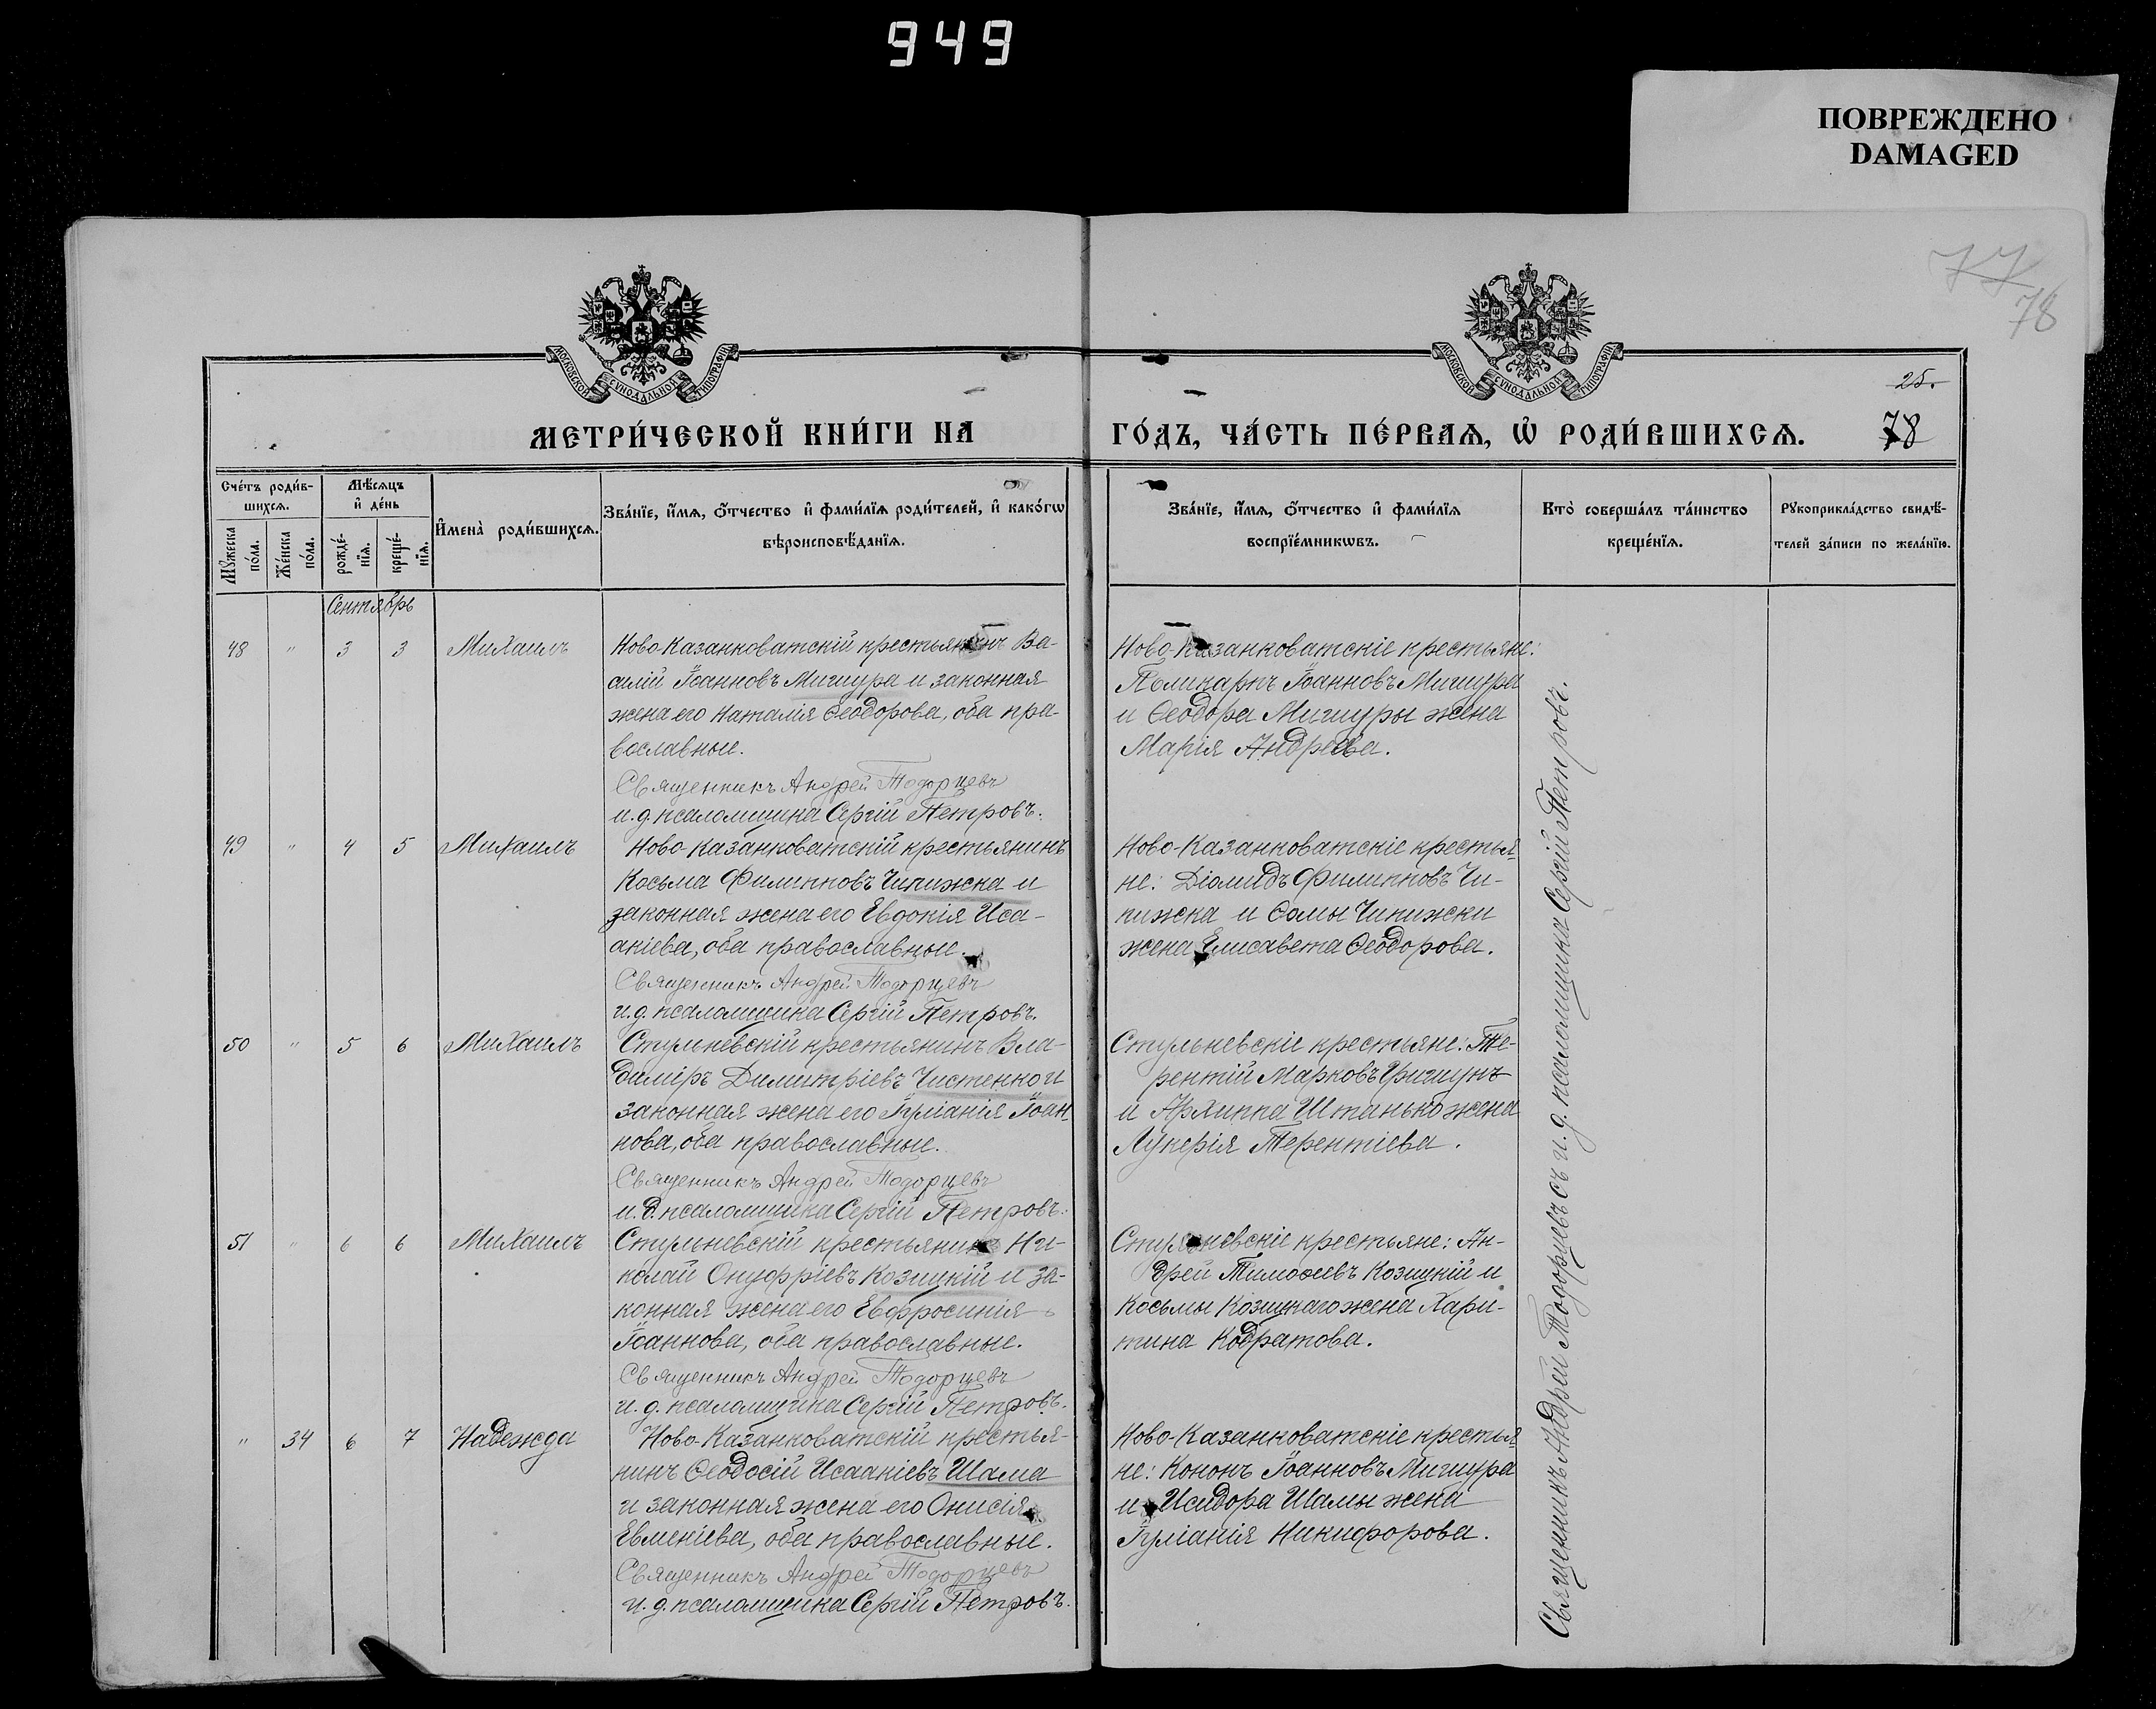 949
ПОВРЕЖДЕНО
DAMAGED
77
78
МОСКОВСКОЙ СѴНОДАЛЬНОЙ ТИПОГРАФІИ
МОСКОВСКОЙ СѴНОДАЛЬНОЙ ТИПОГРАФІИ
25.
МЕТРИ́ЧЕСКОЙ КНИ́ГИ НА
ГО́ДЪ, ЧА́СТЬ ПЕ́РВАѦ, Ѡ҆ РОДИ́ВШИХСѦ.
78
Сче́тъ роди́в-
шихсѧ.
Мꙋ́жеска по́ла.
Же́нска по́ла.
Мѣ́сѧцъ
и҆ де́нь
рожде́-
нїѧ.
креще́-
нїѧ.
И҆мена̀ роди́вшихсѧ.
Зва́нїе, и҆́мѧ, ѻ҆́тчество и҆ фами́лїѧ роди́телей, и҆ како́гѡ
вѣроисповѣ́данїѧ.
Зва́нїе, и҆́мѧ, ѻ҆́тчество и҆ фами́лїѧ
воспрїе́мникѡвъ.
Кто̀ соверша́лъ та́инство
креще́нїѧ.
Рꙋкоприкла́дство свидѣ́-
телей за́писи по жела́нїю.
Сентябрь
48 " 3 3 Михаилъ
Ново-Казанковатскій крестьянинъ Ва-
силій Іоанновъ Мишура и законная
жена его Наталія Ѳеодорова, оба пра-
вославные.
Священникъ Андрей Тодорцевъ
и.д. псаломщика Сергій Петровъ.
Ново-Казанковатскіе крестьяне:
Поликарпъ Іоанновъ Мишура
и Ѳеодора Мишуры жена
Марія Андреева.
49 " 4 5 Михаилъ
Ново-Казанковатскій крестьянинъ
Косьма Филипповъ Чипижка и
законная жена его Евдокія Иса-
акіева, оба православные.
Священникъ Андрей Тодорцевъ
и.д. псаломщика Сергій Петровъ.
Ново-Казанковатскіе крестья-
не: Діомидъ Филипповъ Чи-
пижка и Ѳомы Чипижки
жена Елисавета Ѳеодорова.
50 " 5 6 Михаилъ
Стульневскій крестьянинъ Вла-
диміръ Димитріевъ Чистенко и
законная жена его Іуліанія Іоан-
нова, оба православные.
Священникъ Андрей Тодорцевъ
и.д. псаломщика Сергій Петровъ.
Стульневскіе крестьяне: Те-
рентій Марковъ Гришунъ
и Архиппа Штанько жена
Лукерія Терентіева.
51 " 6 6 Михаилъ
Стульневскій крестьянинъ Ни-
колай Онуфріевъ Козицкій и за-
конная жена его Евфросинія
Іоаннова, оба православные.
Священникъ Андрей Тодорцевъ
и.д. псаломщика Сергій Петровъ.
Стульневскіе крестьяне: Ан-
дрей Тимоѳеевъ Козицкій и
Косьмы Козицкаго жена Хари-
тина Кодратова.
" 34 6 7 Надежда
Ново-Казанковатскій крестья-
нинъ Ѳеодосій Исаакіевъ Шама
и законная жена его Онисія
Евменіева, оба православные.
Священникъ Андрей Тодорцевъ
и.д. псаломщика Сергій Петровъ.
Ново-Казанковатскіе крестья
не: Кононъ Іоанновъ Мишура
и Исидора Шамы жена
Іуліанія Никифорова.
Священникъ Андрей Тодорцевъ съ и.д. псаломщика Сергій Петровъ.